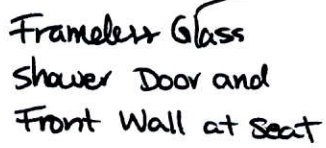 Frameless Glass
Shower Door and
Front Wall at Seat